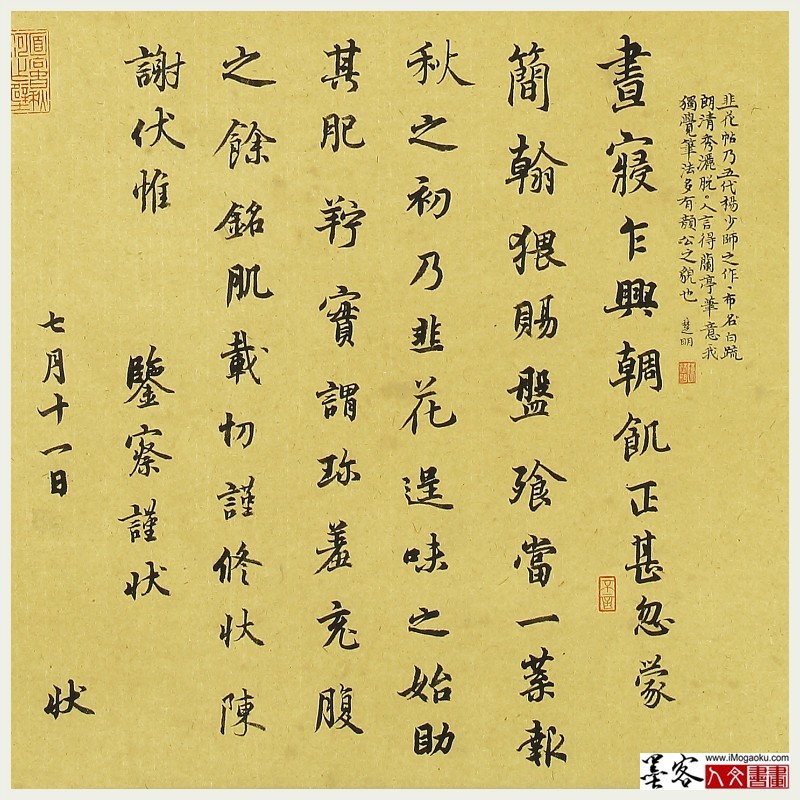 韭花帖乃五代楊少師之作布局白疏
朗清秀灑脱。人言得蘭亭筆意我
獨覺筆法多有顏公之貌也 楚明
晝寢乍興輖飢正甚忽蒙
簡翰猥賜盤飱當一葉報
秋之初乃韭花逞味之始助
其肥羜實謂珎羞充腹
之餘銘肌載切謹修狀陳
謝伏惟 鑒察謹狀
七月十一日 狀
墨客
www.iMogaoku.com
人文書畫